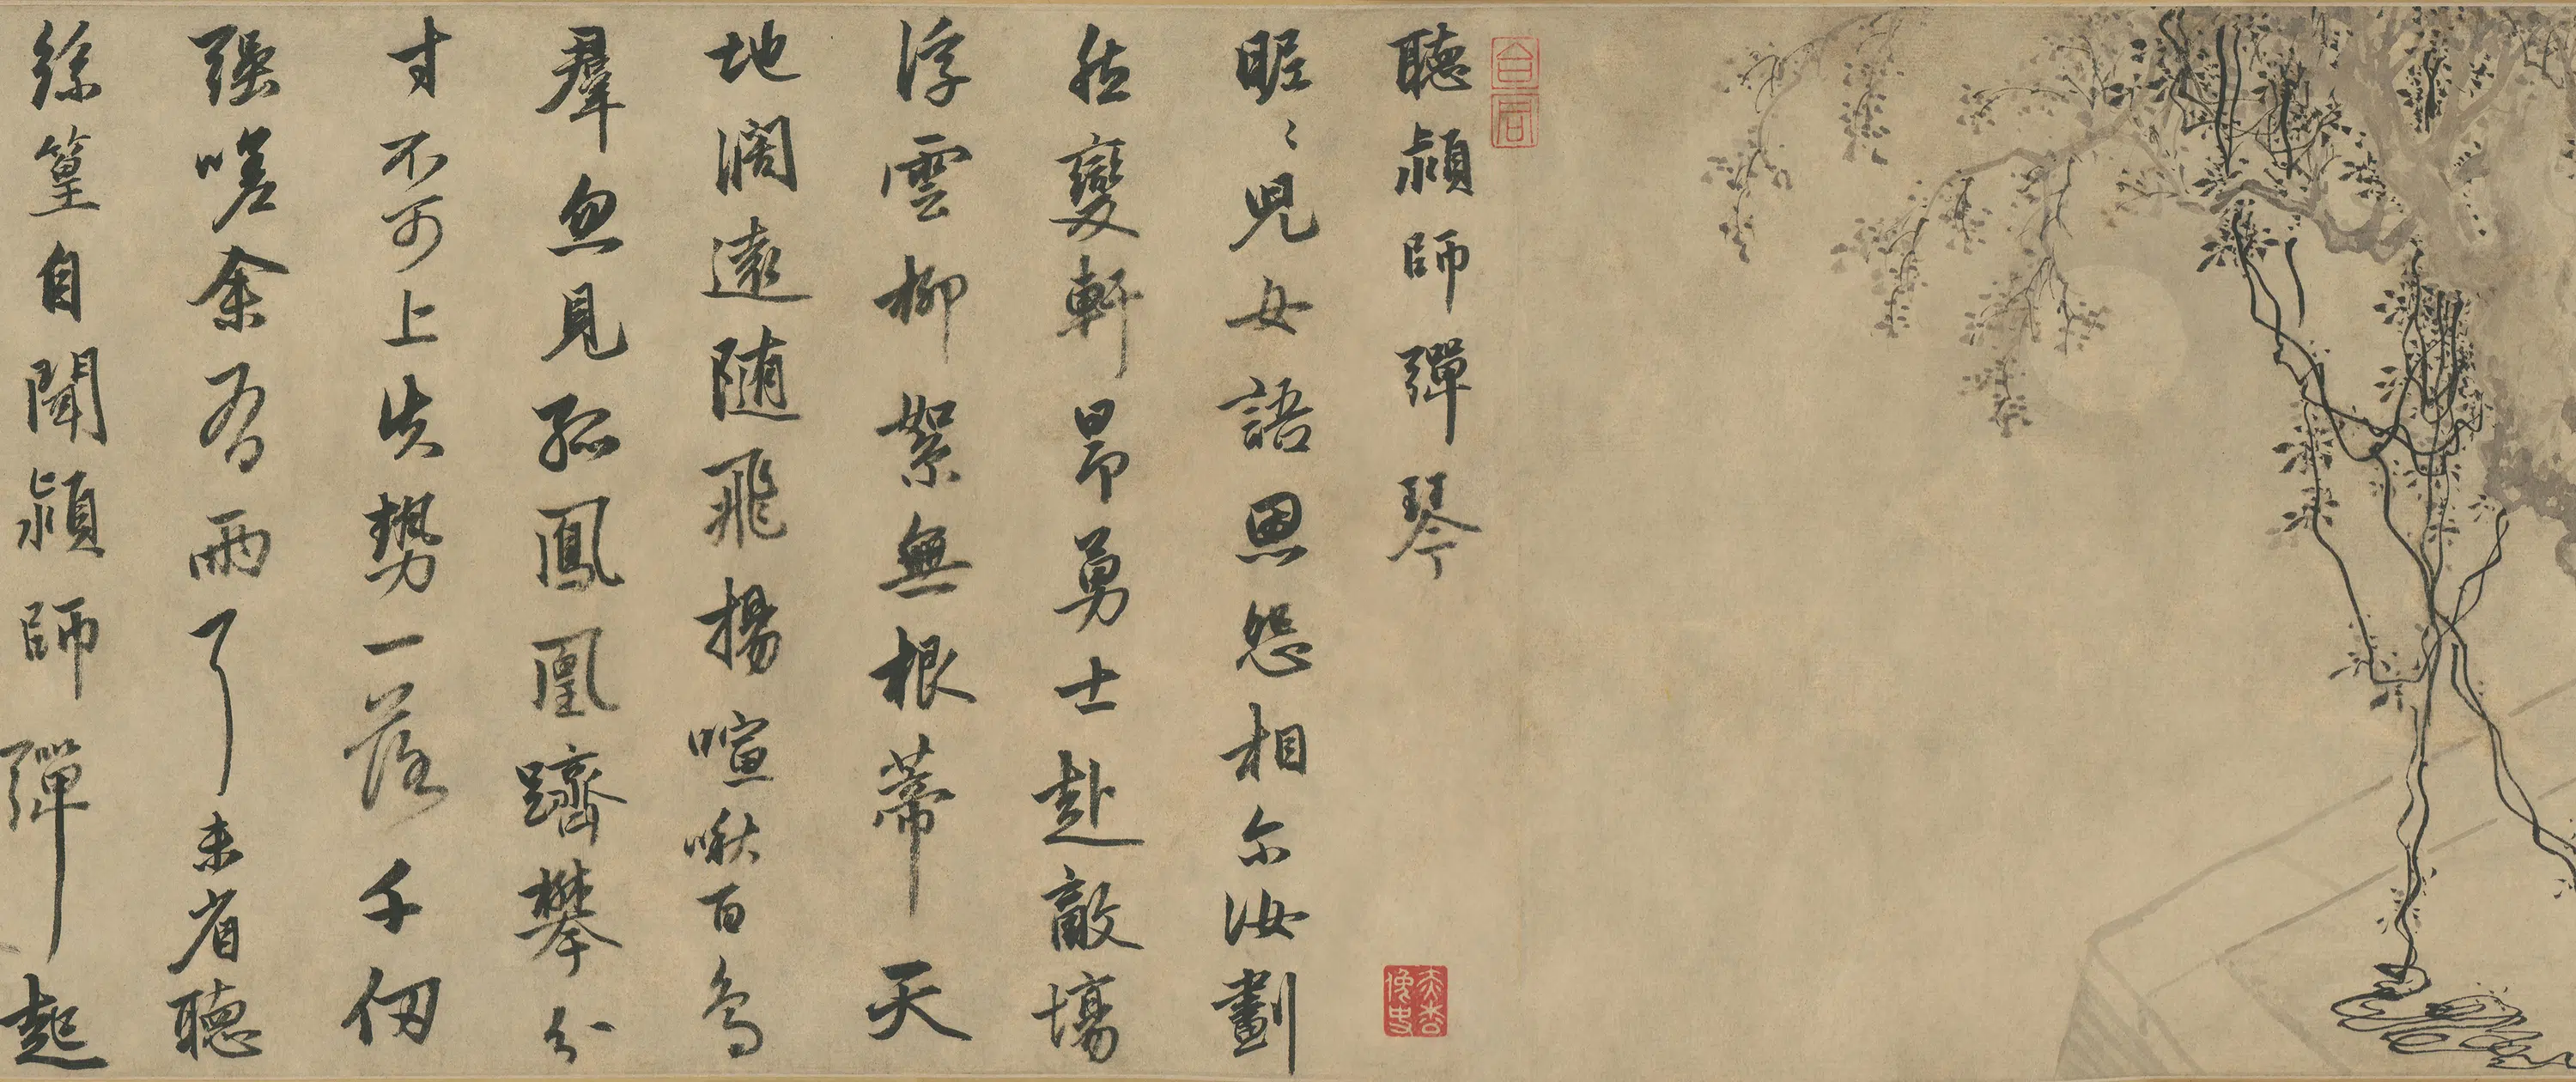 合同
聽潁師彈琴
昵〻兒女語恩怨相尔汝劃
然變軒昂勇士赴敵場
浮雲柳絮無根蒂天
地濶遠随飛揚喧啾百鳥
羣忽見孤鳳凰躋攀分
寸不可上失勢一落千仞
强嗟余有兩耳未省聽
絲篁自聞潁師彈起